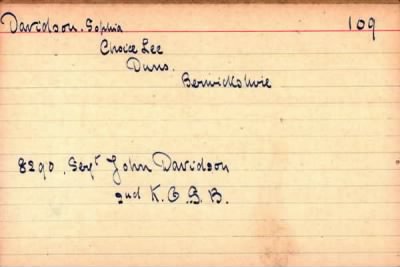 Davidson. Sophia 109
Choice Lee
Duns.
Berwickshire
8290. Sergt John Davidson
2nd K.O.S.B.